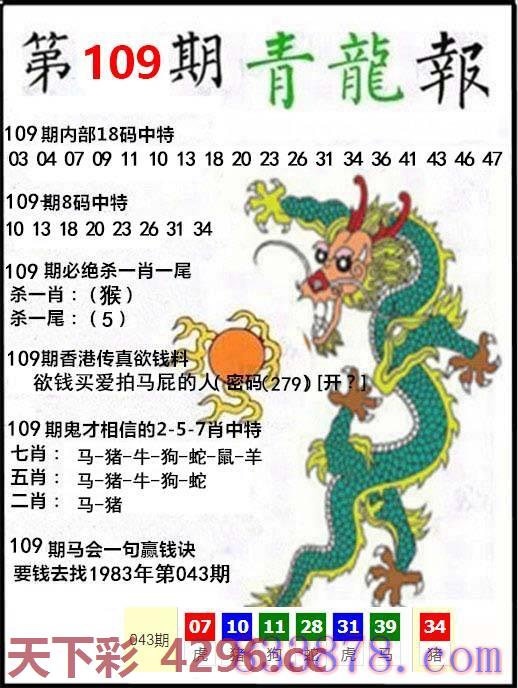 第109期青龍報
109期内部18码中特
03 04 07 09 11 10 13 18 20 23 26 31 34 36 41 43 46 47
109期8码中特
10 13 18 20 23 26 31 34
109期必绝杀一肖一尾
杀一肖：（猴）
杀一尾：（5）
109期香港传真欲钱料
欲钱买爱拍马屁的人(密码(279)[开？]
109期鬼才相信的2-5-7肖中特
七肖：马-猪-牛-狗-蛇-鼠-羊
五肖：马-猪-牛-狗-蛇
二肖：马-猪
109期马会一句赢钱诀
要钱去找1983年第043期
043期 07 10 11 28 31 39 34
虎 猪 狗 蛇 虎 马 猪
天下彩 4296.cc